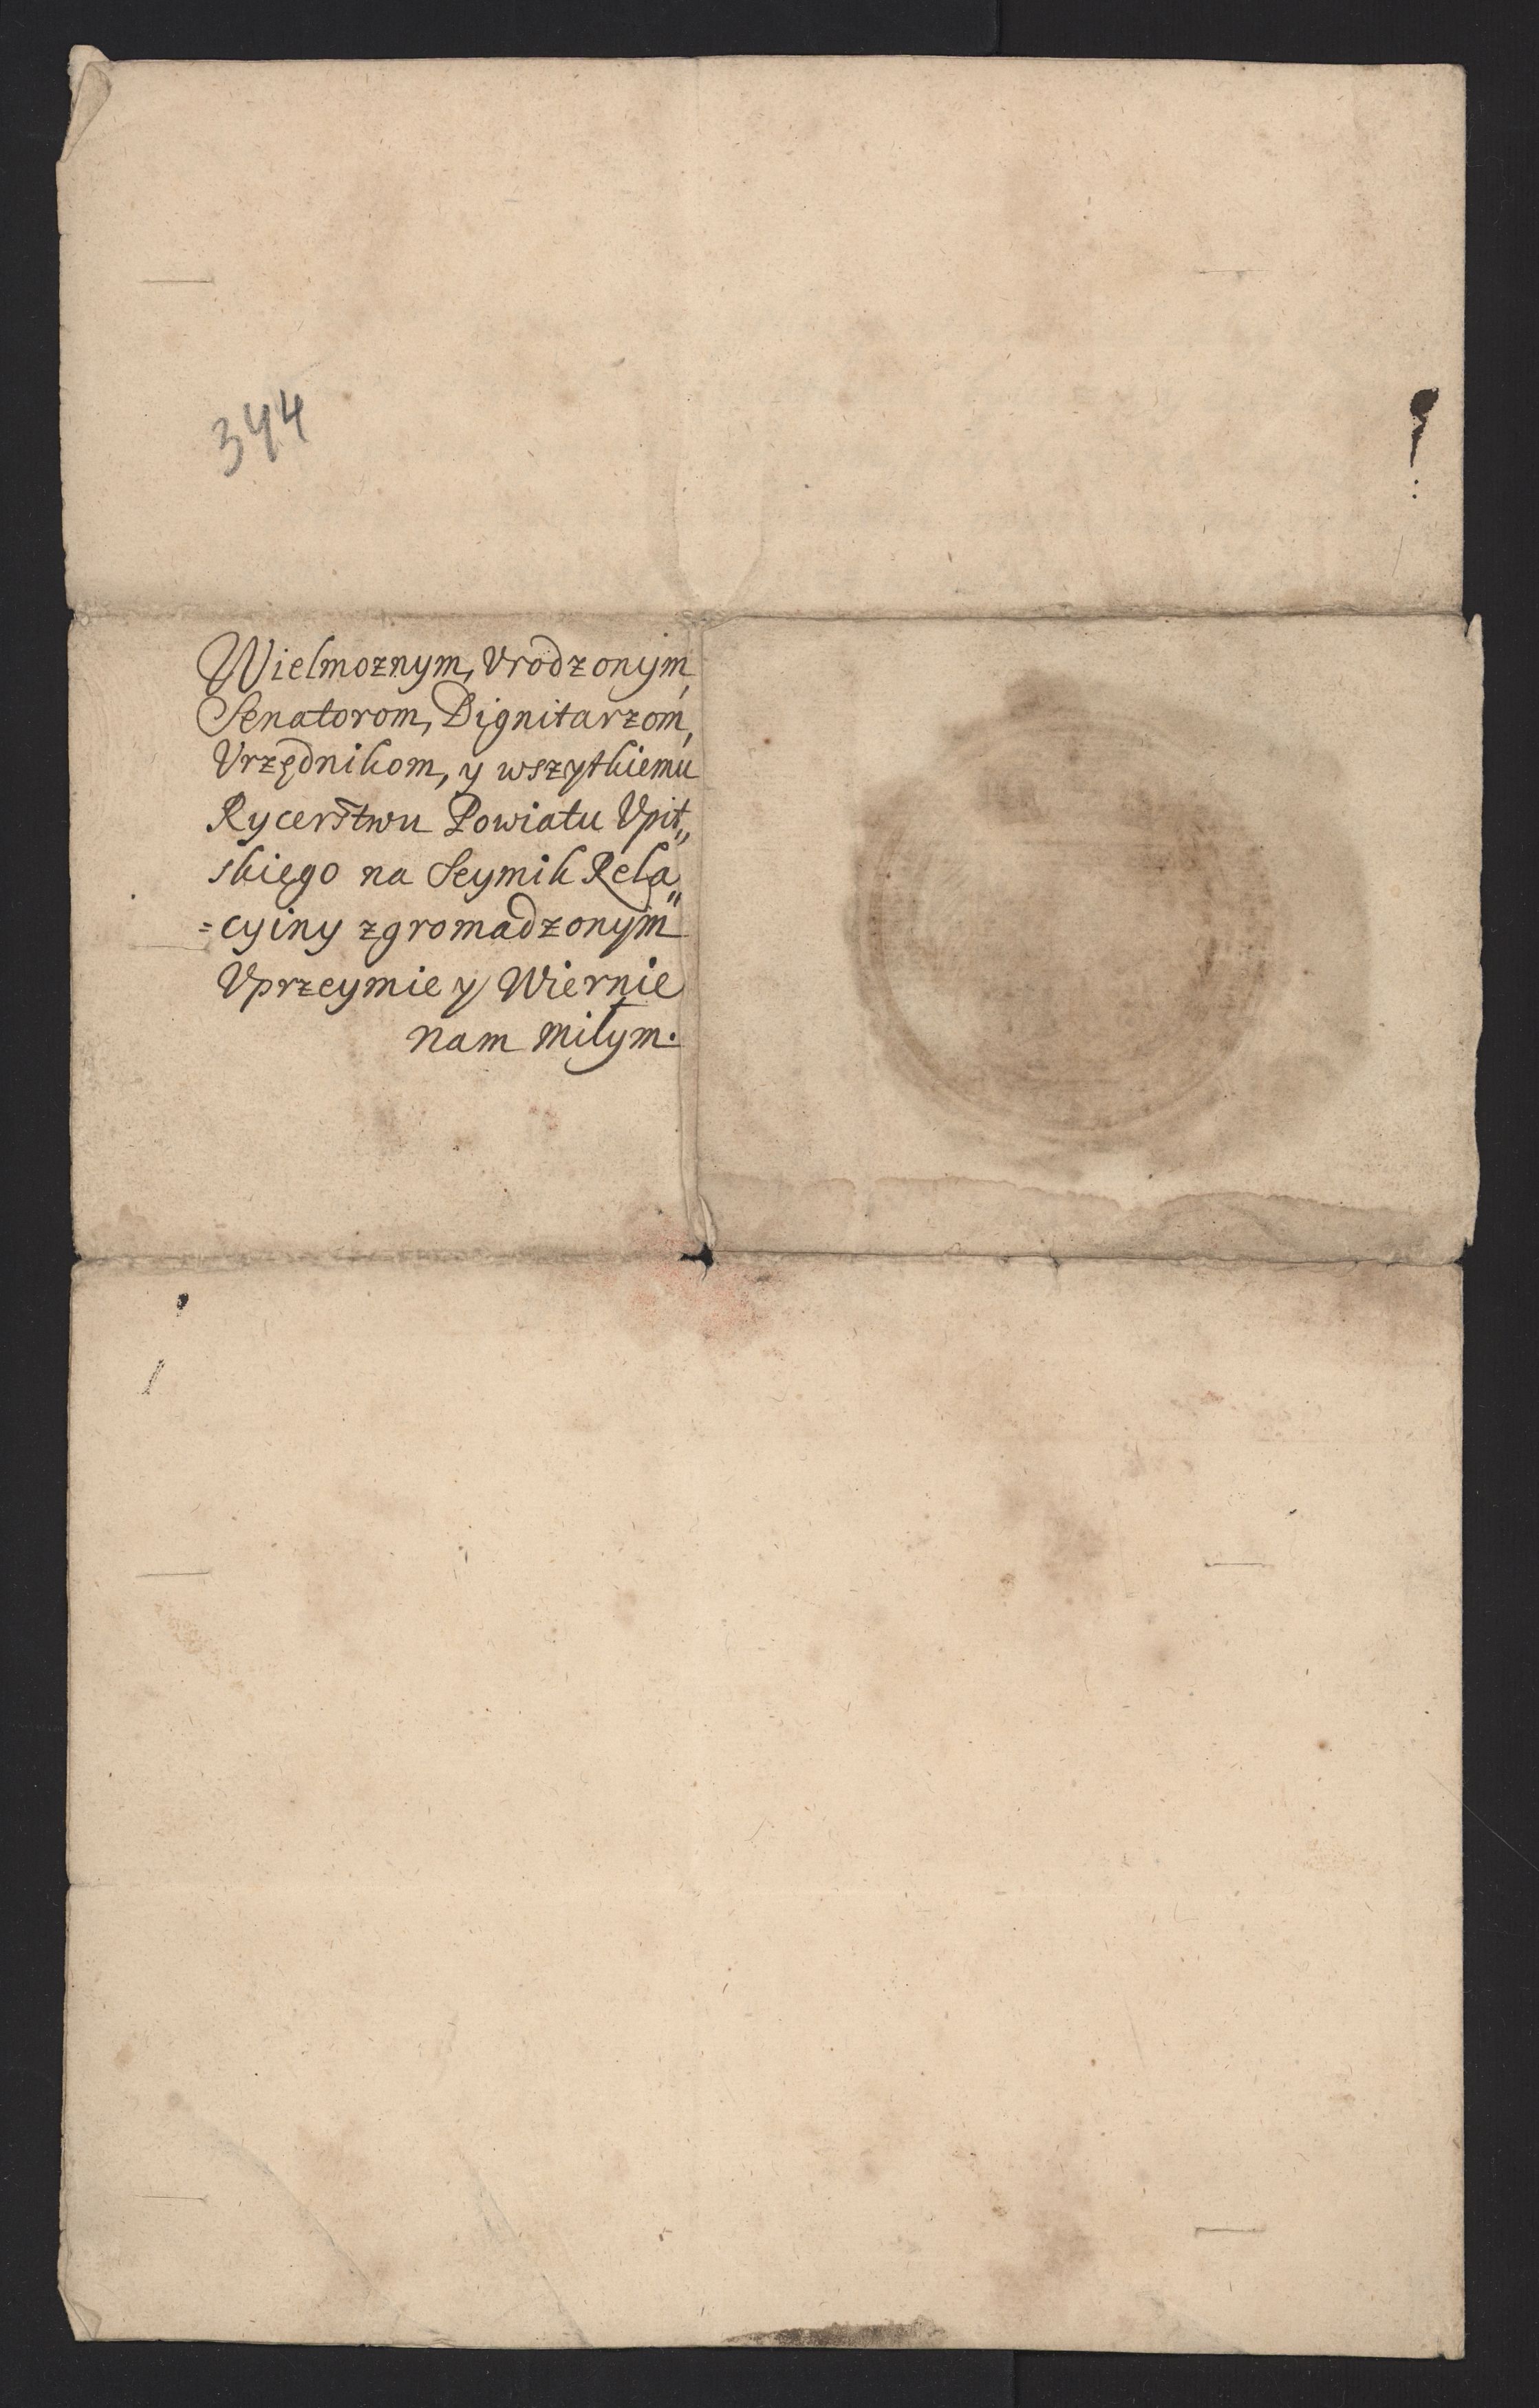 344
Wielmoznym, Vrodzonym,
Senatorom, Dignitarzom,
Vrzędnikom, y wszytkiemu
Rycerstwu Powiatu Vpit„
skiego na Seymik Rela„
=cyiny zgromadzonym
Vprzeymie y Wiernie
nam miłym.